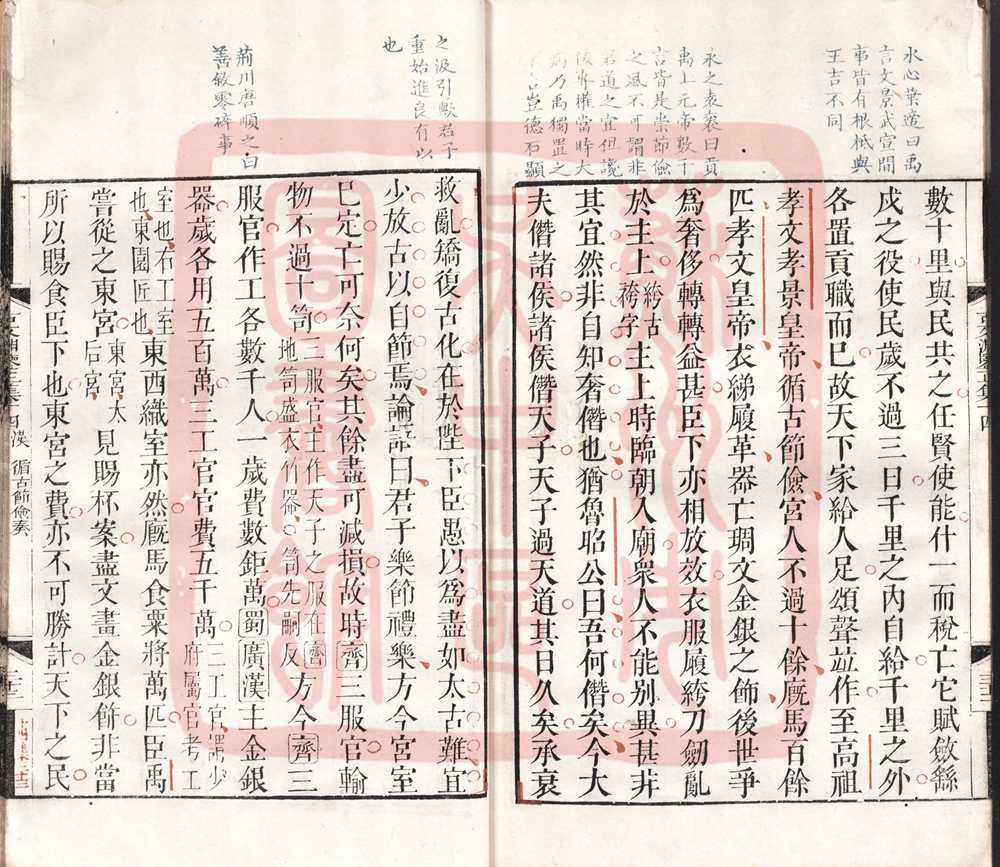 水心葉適曰禹
言文景武宣間
事皆有根柢與
王吉不同
永之表裒曰貢
禹上元帝數千
言皆是崇節儉
之風不可謂非
君道之宜但讒
後專權當時大
病乃禹獨置之
豈德石顯
數十里與民共之任賢使能什一而稅亡它賦斂繇
戍之役使民歲不過三日千里之內自給千里之外
各置貢職而已故天下家給人足頌聲並作至高祖
孝文孝景皇帝循古節儉宮人不過十餘廐馬百餘
匹孝文皇帝衣綈履革器亡琱文金銀之飾後世爭
爲奢侈轉轉益甚臣下亦相放效衣服履絝刀劒亂
於主上絝古袴字主上時臨朝入廟衆人不能別異甚非
其宜然非自知奢僭也猶魯昭公曰吾何僭矣今大
夫僭諸侯諸侯僭天子天子過天道其日久矣承衰
之汲引歟君子
重始進良有以
也
荊川唐順之曰
善敘零碎事
救亂矯復古化在於陛下臣愚以爲盡如太古難宜
少放古以自節焉論語曰君子樂節禮樂方今宮室
已定亡可奈何矣其餘盡可減損故時齊三服官輸
物不過十笥三服官主作天子之服在齊地笥盛衣竹器○笥先嗣反方今齊三
服官作工各數千人一歲費數鉅萬蜀廣漢主金銀
器歲各用五百萬三工官官費五千萬三工官謂少府屬官考工
室也右工室也東園匠也東西織室亦然廐馬食粟將萬匹臣禹
嘗從之東宮東宮太后宮見賜杯案盡文畫金銀飾非當
所以賜食臣下也東宮之費亦不可勝計天下之民
四漢
循古節儉奏